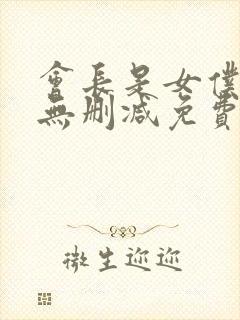 會長是女僕
無刪減免費
微生迩迩